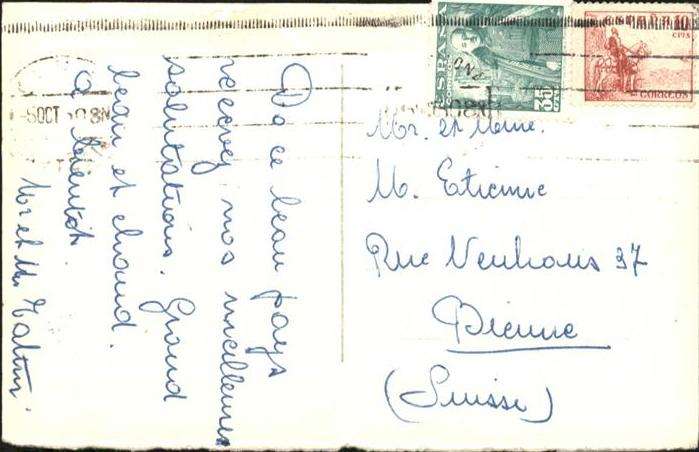 De ce beau pays
recevez nos meilleures
salutations. Grand
beau et chaud.
à bientôt
Mr et Mme
Mr. et Mme.
M. Etienne
Rue Neuhaus 37
Bienne
(Suisse)
ESPAÑA
35
CORREOS
10
CTS
5 OCT
8N